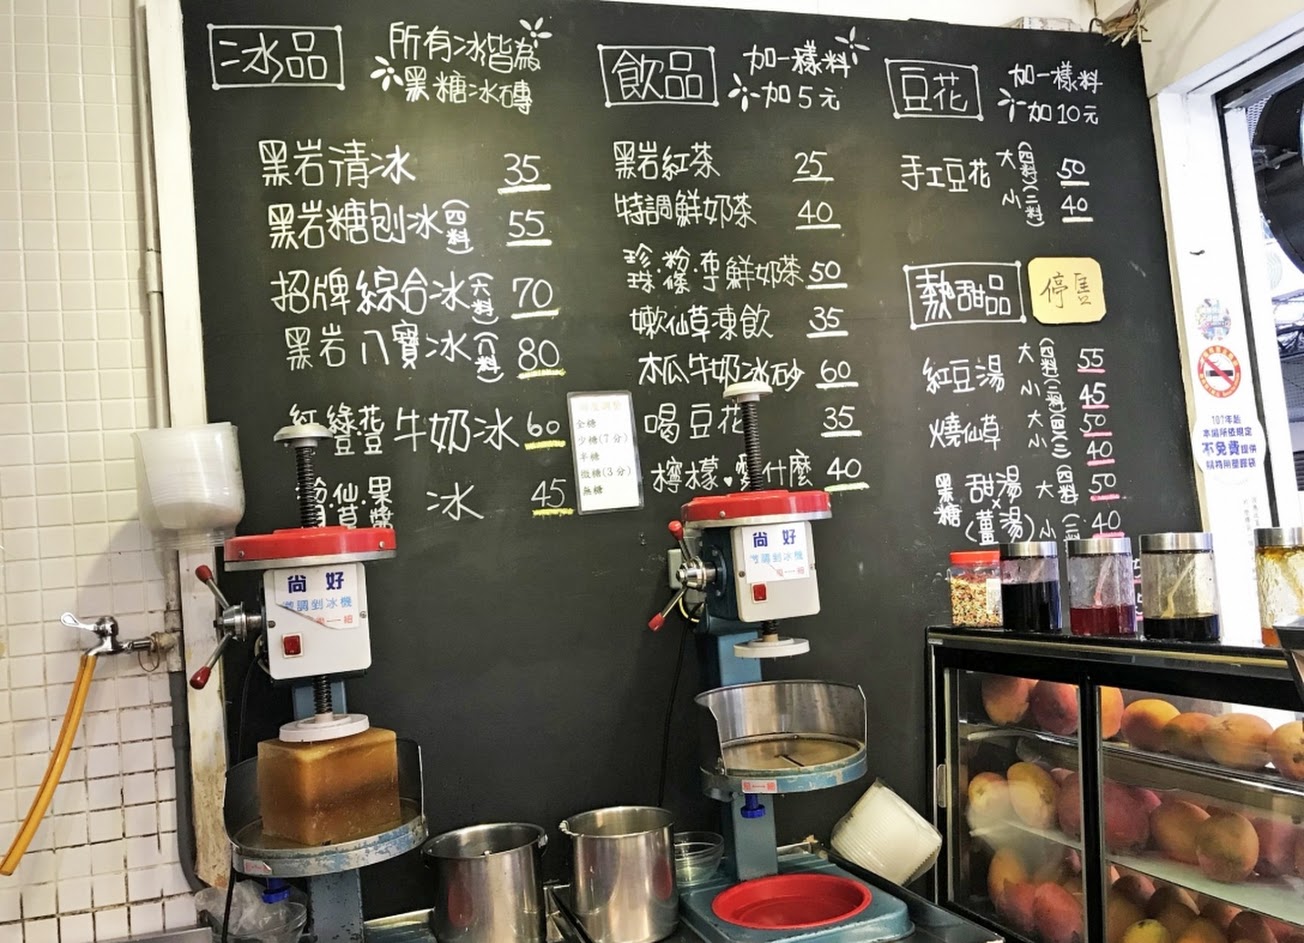 冰品
所有冰皆為
黑糖冰磚
黑岩清冰 35
黑岩糖刨冰(四料) 55
招牌綜合冰(六料) 70
黑岩八寶冰(八料) 80
牛奶冰 60
冰 45
飲品
加一樣料
加5元
黑岩紅茶 25
特調鮮奶茶 40
鮮奶茶 50
嫩仙草凍飲 35
木瓜牛奶冰砂 60
喝豆花 35
檸檬愛什麼 40
全糖
少糖(7分)
半糖
微糖(3分)
無糖
豆花
加一樣料
加10元
手工豆花 大(四料) 50
小(二料) 40
熱甜品
停售
紅豆湯 大(四料) 55
小(二料) 45
燒仙草 大(四) 50
小 40
黑糖 甜湯 大(四料) 50
(薑湯) 小 40
尚好
尚好
107年起
本場所依規定
不免費提供